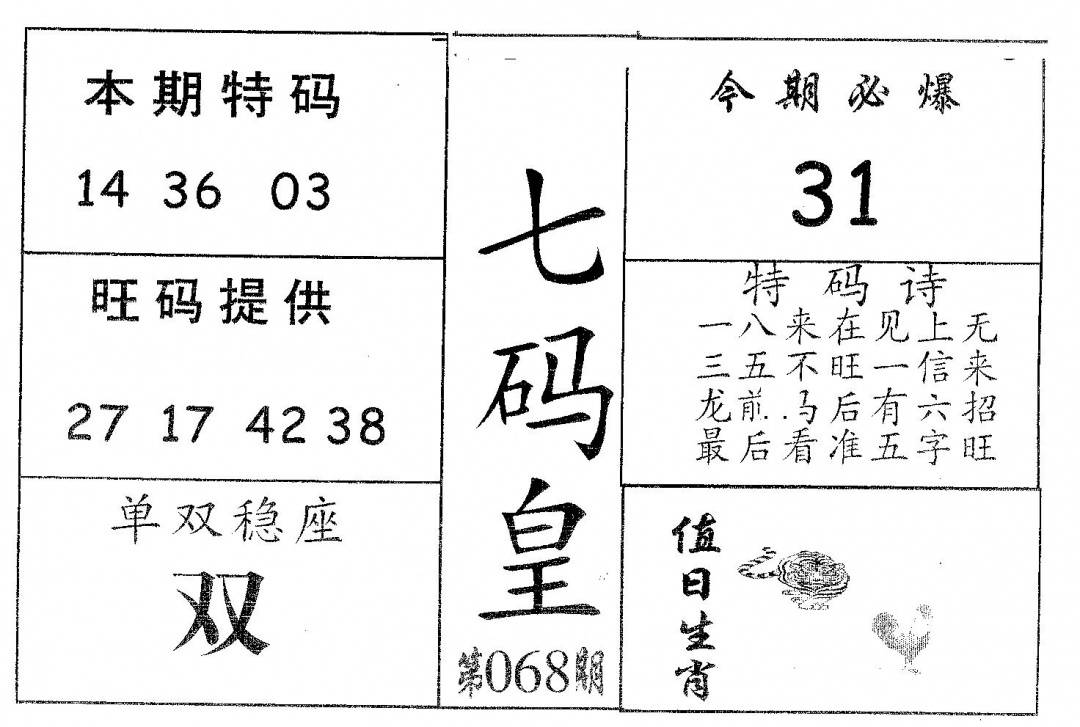 本期特码
14 36 03
旺码提供
27 17 42 38
单双稳座
双
七码皇
第068期
今期必爆
31
特码诗
一八来在见上无
三五不旺一信来
龙前..马后有六招
最后看准五字旺
值日生肖